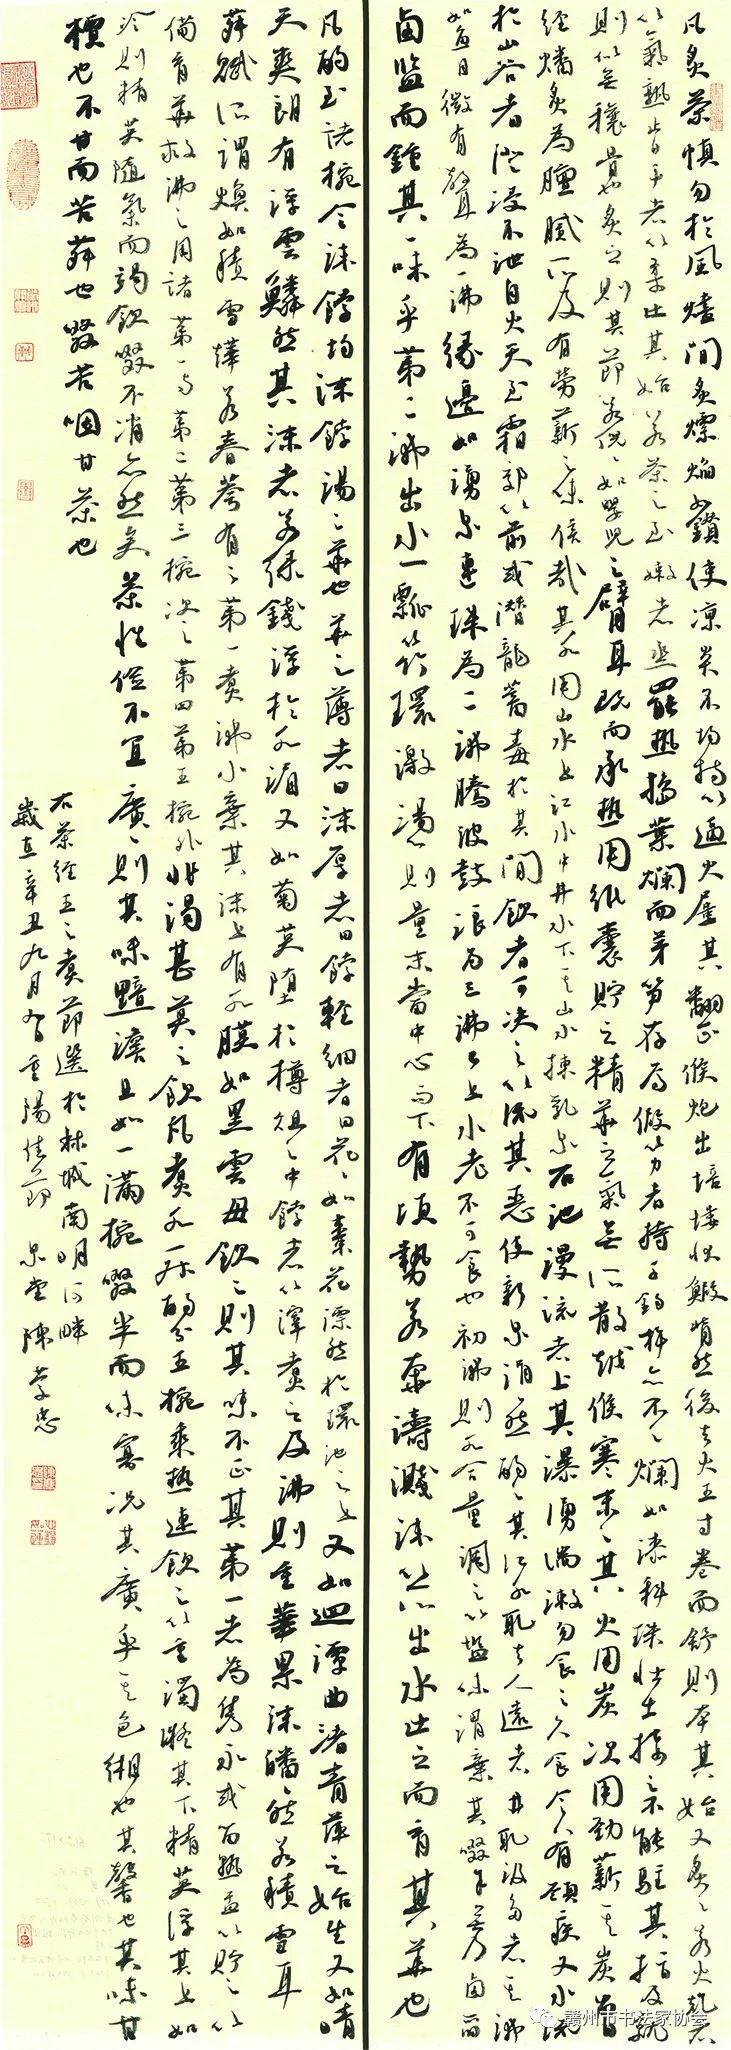 凡炙茶慎勿於風燼間炙熛焰如鑽使凉炎不均持以逼火屢其翻正候炮出培塿狀蝦蟆然後去火五寸卷而舒則本其始又炙之若火乾者
以氣熟止日乾者以柔止其始若茶之至嫩者蒸罷熱搗葉爛而芽笋存焉假以力者持千鈞杵亦不之爛如漆科珠壯士接之不能駐其指及就
則似無穰骨也炙之則其節若倪倪如嬰兒之臂耳既而承熱用紙囊貯之精華之氣無所散越候寒末之其火用炭次用勁薪其炭曾
經燔炙為膻膩所及有勞薪之味信哉其水用山水上江水中井水下其山水揀乳泉石池漫流者上其瀑湧湍漱勿食之久食令人有頸疾又水流
於山谷者澄浸不洩自火天至霜郊以前或潛龍蓄毒於其間飲者可決之以流其惡使新泉涓然酌之其江水取去人遠者井取汲多者其沸
如魚目微有聲為一沸緣邊如湧泉連珠為二沸騰波鼓浪為三沸已上水老不可食也初沸則水合量調之以鹽味謂棄其啜餘無乃
鹵監而鍾其一味乎第二沸出水一瓢以竹環激湯則量末當中心而下有頃勢若奔濤濺沫以所出水止之而育其華也
凡酌至諸椀令沫餑均沫餑湯之華也華之薄者曰沫厚者曰餑輕細者曰花花如棗花漂然於環池之上又如迴潭曲渚青萍之始生又如晴
天爽朗有浮雲鱗然其沫者若綠錢浮於水湄又如菊英墮於樽俎之中餑者以滓煮之及沸則重華累沫皤皤然若積雪耳
荈賦所謂煥如積雪燁若春蕚有之第一煮沸水棄其沫上有水膜如黑雲母飲之則其味不正其第一者為雋永或留熟盂以貯之以
備育華救沸之用諸第一與第二第三椀次之第四第五椀外非渴甚莫之飲凡煮水一升酌分五椀乘熱連飲之以重濁凝其下精英浮其上如
冷則精英隨氣而竭飲啜不消亦然矣茶性儉不宜廣廣則其味黯澹且如一滿椀啜半而味寡況其廣乎其色緗也其馨也其味甘
檟也不甘而苦荈也啜苦咽甘茶也
右茶經五之煮節選於林城南明河畔
歲在辛丑九月九日重陽佳節
赣州市书法家协会